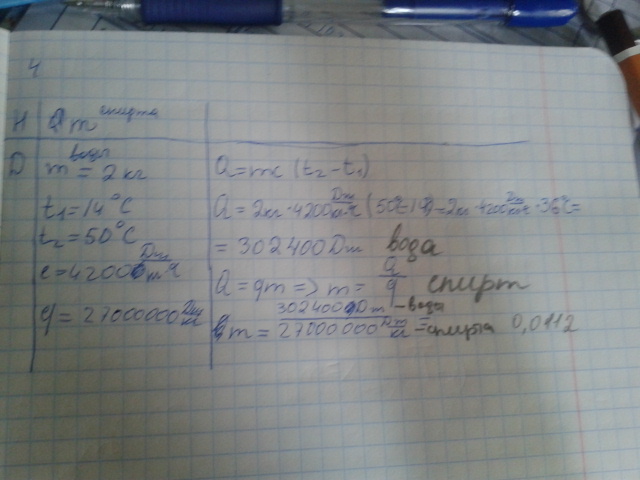 4
Н m спирта
Д m воды = 2 кг
t₁ = 14°C
t₂ = 50°C
c = 4200
q = 27000000 Дж/кг
Q = mc (t₂ - t₁)
Q = 2кг · 4200 Дж/кг°С (50°С-14°) = 2кг · 4200 Дж/кг°С · 36°С =
= 302400 Дж вода
Q = qm => m = Q/q спирт
m = 302400 Дж - воды / 27000000 Дж/кг = спирта 0,0112